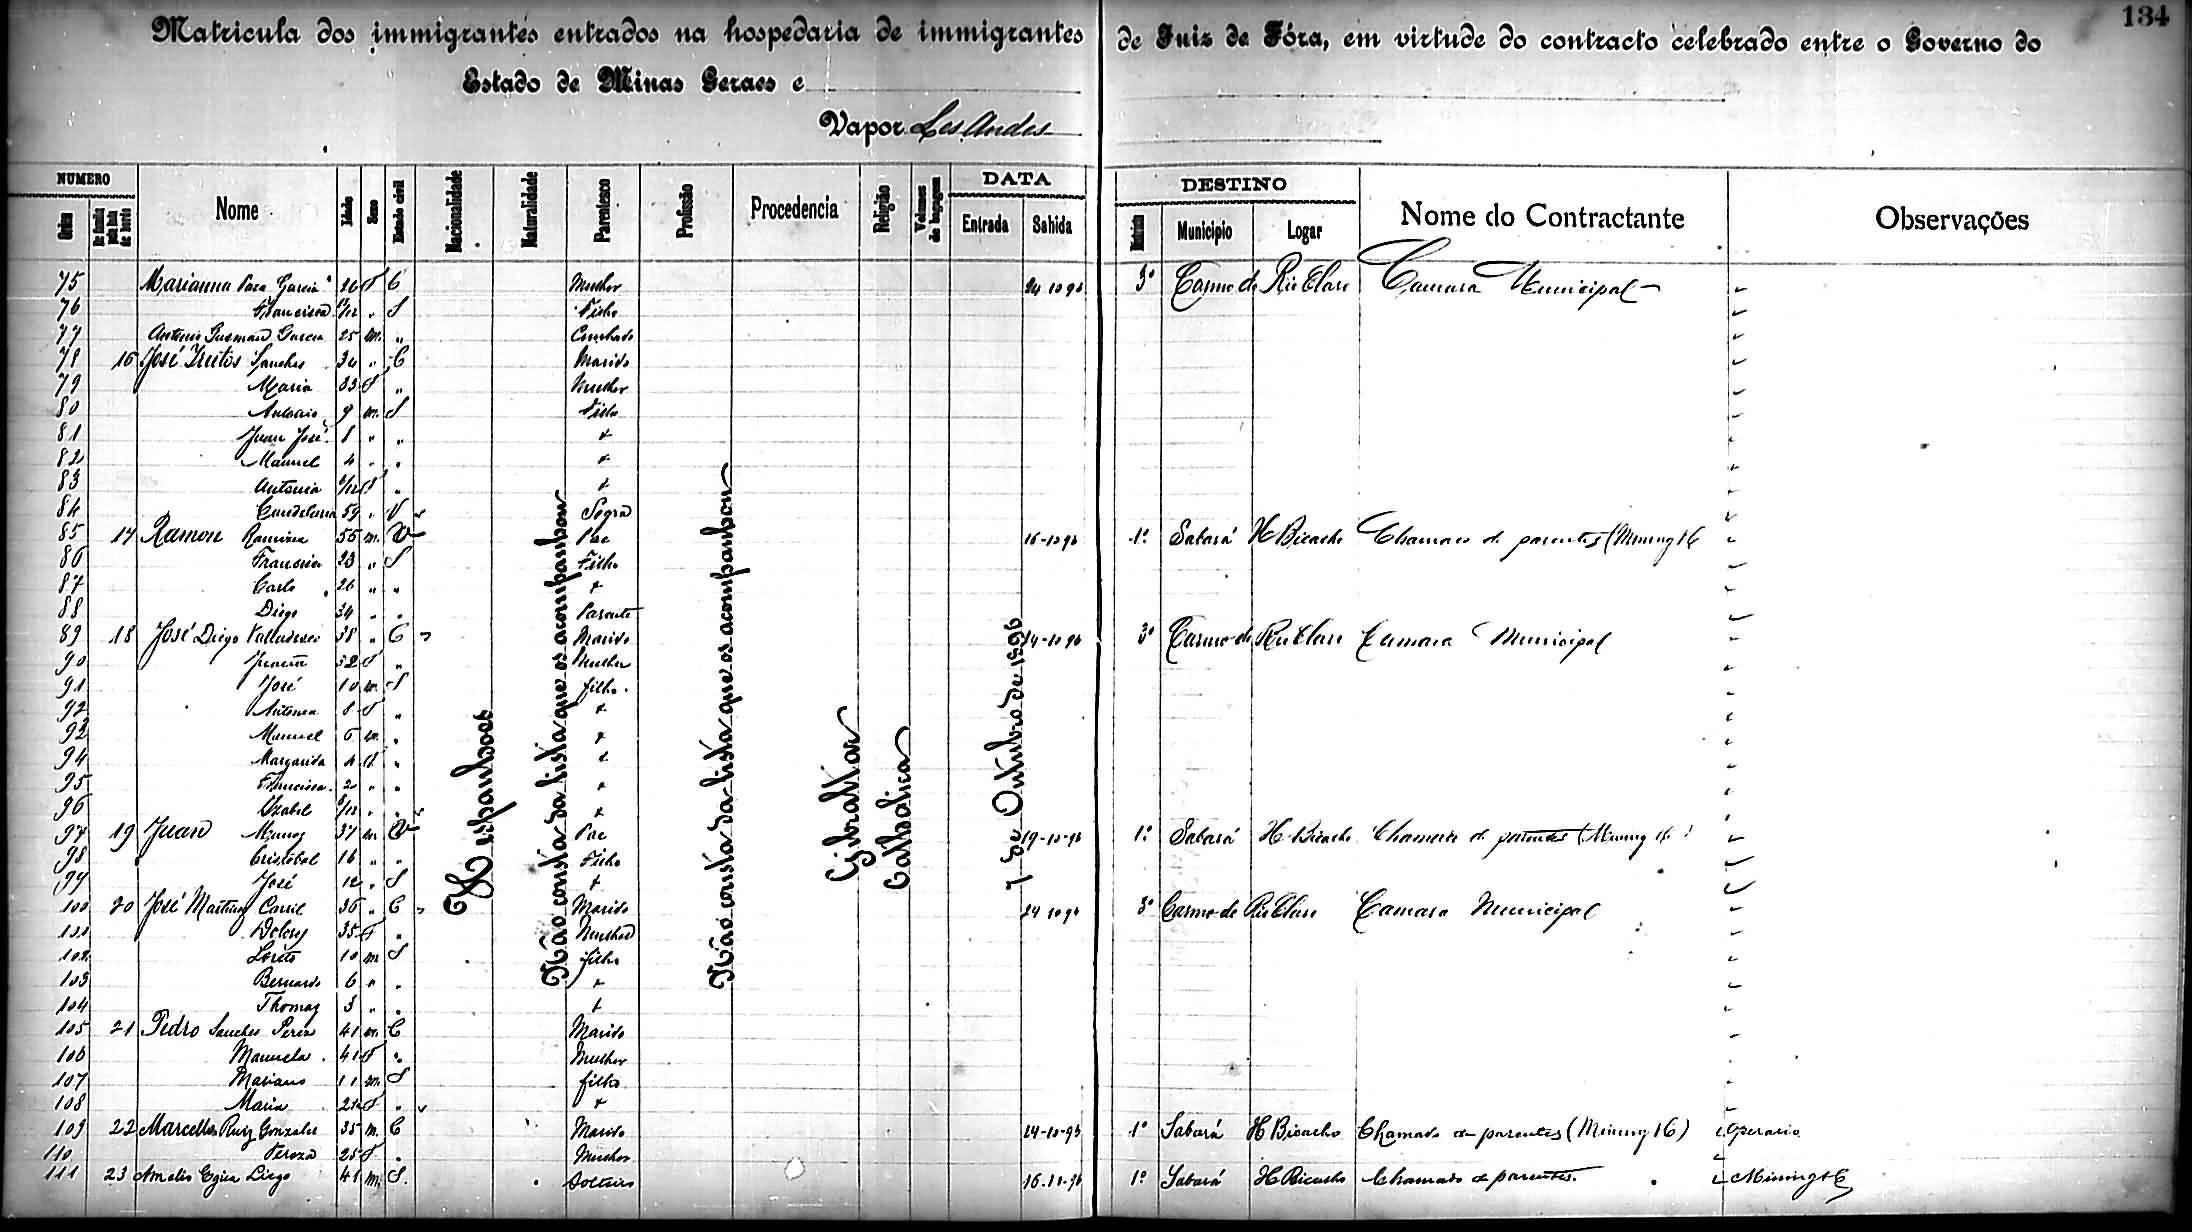 134
Matricula dos immigrantes entrados na hospedaria de immigrantes de Juiz de Fóra, em virtude do contracto celebrado entre o Governo do
Estado de Minas Geraes e
Vapor Les Andes
NUMERO DATA DESTINO
Ordem Nome Idade Sexo Estado civil Nacionalidade Naturalidade Parentesco Profissão Procedencia Religião Volumes de bagagem Entrada Sahida Municipio Logar Nome do Contractante Observações
75 Marianna Garcia 26 F C Mulher 24 10 96 3º Carmo do Rio Claro Camara Municipal
76 Francisca /12 " S Filho
77 Antonio Gusman Garcia 25 m. " Cunhado
78 16 José Sanches 34 " C Marido
79 Maria 33 F " Mulher
80 Antonio 9 m. S Filho
81 Juan José 8 " "
82 Manuel 4 " "
83 Antonia /12 F "
84 59 " V Sogra
85 17 Ramon 55 m. V Pae 16-10-96 1º Sabará H Bicalho Chamado de parentes (Mining
86 Francisco 23 " S Filho
87 Carlo 26 " "
88 Diego 34 " " Parente
89 18 José Diego 38 " C Marido 24-10 96 3º Carmo do Rio Claro Camara Municipal
90 32 F " Mulher
91 José 10 m. S filho
92 Antonia 8 F "
92 Manuel 6 m. "
94 Margarida 4 F "
95 Francisca 2 " "
96 Izabel /12 " "
97 19 Juan Munoz 37 m V Pae 19-10-96 1º Sabará H. Bicalho Chamado de parentes (Mining
98 Cristobal 16 " " Filho
99 José 12 " S
100 20 José Martinez 36 " C Marido 24 10 96 3º Carmo do Rio Claro Camara Municipal
101 Dolores 35 F " Mulher
102 Loreto 10 m S filho
103 Bernardo 6 " "
104 Thomaz 3 " "
105 21 Pedro Sanches Perez 41 m. C Marido
106 Manuela 41 F " Mulher
107 Mariano 11 m. S filho
108 Maria F "
109 22 Marcellos Ruiz Gonzales 35 m. C Marido 24-10-96 1º Sabará H Bicalho Chamado de parentes (Mining Operario
110 Tereza 25 F " Mulher
111 23 41 m. S. Solteiro 16-10-96 1º Sabará H Bicalho Chamado de parentes. Mining
Hespanhoes
Não consta da lista que os acompanhou
Não consta da lista que os acompanhou
Gibraltar
Catholica
7 de Outubro de 1896